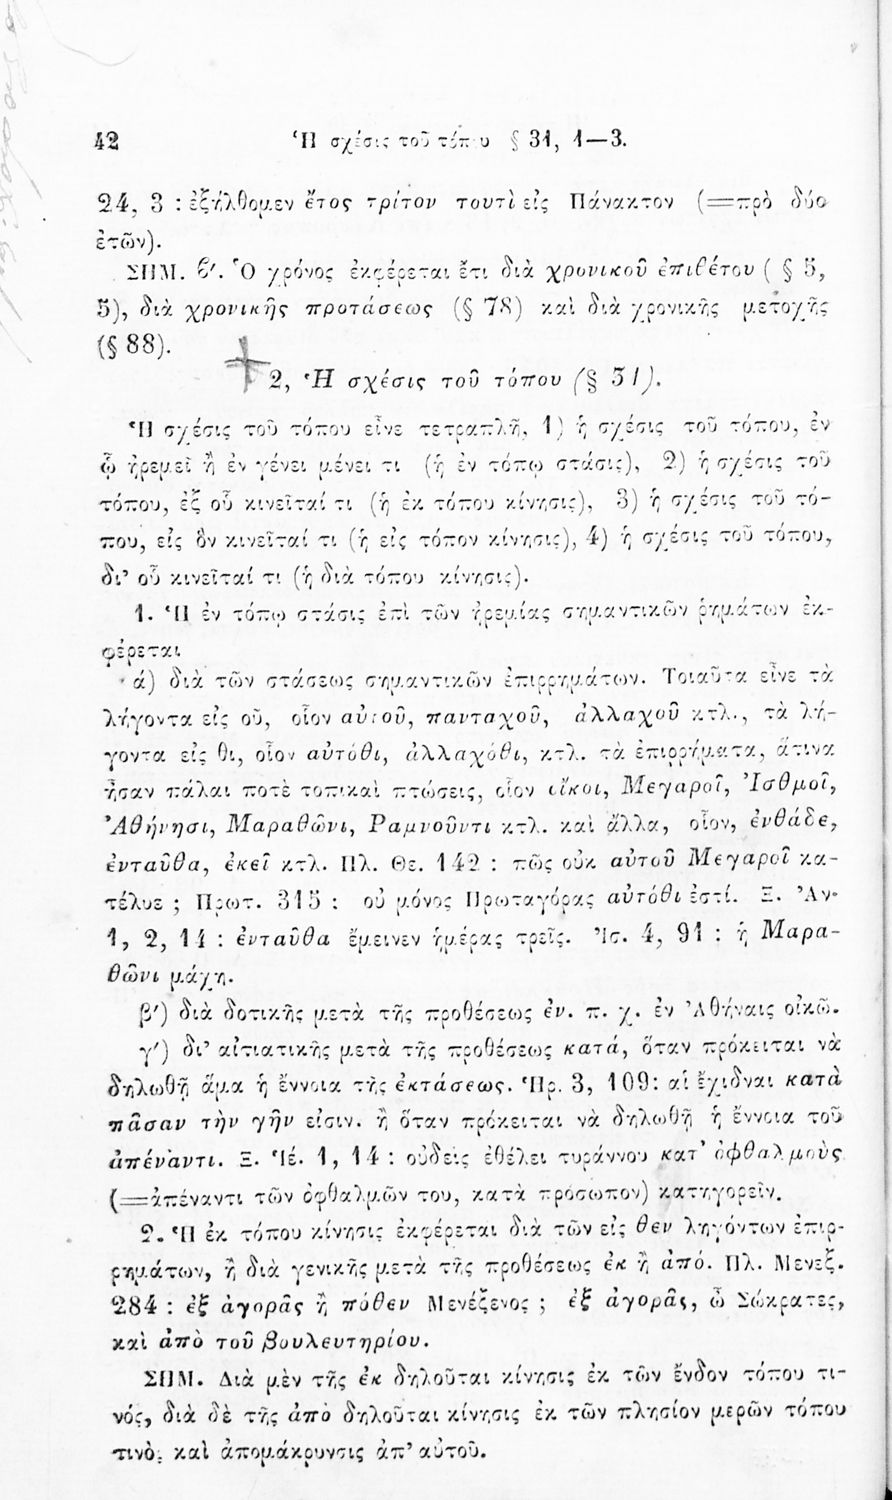 42 Ἡ σχέσις τοῦ τόπου § 31, 1—3.
24, 3 : ἐξήλθομεν ἔτος τρίτον τουτὶ εἰς Πάνακτον (=πρὸ δύο
ἐτῶν).
ΣΗΜ. β′. Ὁ χρόνος ἐκφέρεται ἔτι διὰ χρονικοῦ ἐπιθέτου ( § 5,
5), διὰ χρονικῆς προτάσεως (§ 78) καὶ διὰ χρονικῆς μετοχῆς
(§ 88).
2, Ἡ σχέσις τοῦ τόπου (§ 31).
Ἡ σχέσις τοῦ τόπου εἶνε τετραπλῆ, 1) ἡ σχέσις τοῦ τόπου, ἐν
ᾧ ἠρεμεῖ ἢ ἐν γένει μένει τι (ἡ ἐν τόπῳ στάσις), 2) ἡ σχέσις τοῦ
τόπου, ἐξ οὗ κινεῖταί τι (ἡ ἐκ τόπου κίνησις), 3) ἡ σχέσις τοῦ τό-
που, εἰς ὃν κινεῖταί τι (ἡ εἰς τόπον κίνησις), 4) ἡ σχέσις τοῦ τόπου,
δι' οὗ κινεῖταί τι (ἡ διὰ τόπου κίνησις).
1. Ἡ ἐν τόπῳ στάσις ἐπὶ τῶν ἠρεμίας σημαντικῶν ῥημάτων ἐκ-
φέρεται
ά) διὰ τῶν στάσεως σημαντικῶν ἐπιρρημάτων. Τοιαῦτα εἶνε τὰ
λήγοντα εἰς οῦ, οἷον αὐτοῦ, πανταχοῦ, ἀλλαχοῦ κτλ., τὰ λή-
γοντα εἰς θι, οἷον αὐτόθι, ἀλλαχόθι, κτλ. τὰ ἐπιρρήματα, ἅτινα
ἦσαν πάλαι ποτὲ τοπικαὶ πτώσεις, οἷον οἴκοι, Μεγαροῖ, Ἰσθμοῖ,
Ἀθήνησι, Μαραθῶνι, Ραμνοῦντι κτλ. καὶ ἄλλα, οἷον, ἐνθάδε,
ἐνταῦθα, ἐκεῖ κτλ. Πλ. Θε. 142 : πῶς οὐκ αὐτοῦ Μεγαροῖ κα-
τέλυε ; Πρωτ. 315 : οὐ μόνος Πρωταγόρας αὐτόθι ἐστί. Ξ. Ἀν·
1, 2, 14 : ἐνταῦθα ἔμεινεν ἡμέρας τρεῖς. Ἰσ. 4, 91 : ἡ Μαρα-
θῶνι μάχη.
β′) διὰ δοτικῆς μετὰ τῆς προθέσεως ἐν. π. χ. ἐν Ἀθήναις οἰκῶ.
γ′) δι' αἰτιατικῆς μετὰ τῆς προθέσεως κατά, ὅταν πρόκειται νὰ
δηλωθῇ ἅμα ἡ ἔννοια τῆς ἐκτάσεως. Ἡρ. 3, 109: αἱ ἔχιδναι κατὰ
πᾶσαν τὴν γῆν εἰσιν. ἢ ὅταν πρόκειται νὰ δηλωθῇ ἡ ἔννοια τοῦ
ἀπέναντι. Ξ. Ἱέ. 1, 14 : οὐδεὶς ἐθέλει τυράννου κατ' ὀφθαλμοὺς
(=ἀπέναντι τῶν ὀφθαλμῶν του, κατὰ πρόσωπον) κατηγορεῖν.
2. Ἡ ἐκ τόπου κίνησις ἐκφέρεται διὰ τῶν εἰς θεν ληγόντων ἐπιρ-
ρημάτων, ἢ διὰ γενικῆς μετὰ τῆς προθέσεως ἐκ ἢ ἀπό. Πλ. Μενεξ.
284 : ἐξ ἀγορᾶς ἢ πόθεν Μενέξενος ; ἐξ ἀγορᾶς, ὦ Σώκρατες,
καὶ ἀπὸ τοῦ βουλευτηρίου.
ΣΗΜ. Διὰ μὲν τῆς ἐκ δηλοῦται κίνησις ἐκ τῶν ἔνδον τόπου τι-
νός, διὰ δὲ τῆς ἀπὸ δηλοῦται κίνησις ἐκ τῶν πλησίον μερῶν τόπου
τινὸς καὶ ἀπομάκρυνσις ἀπ' αὐτοῦ.